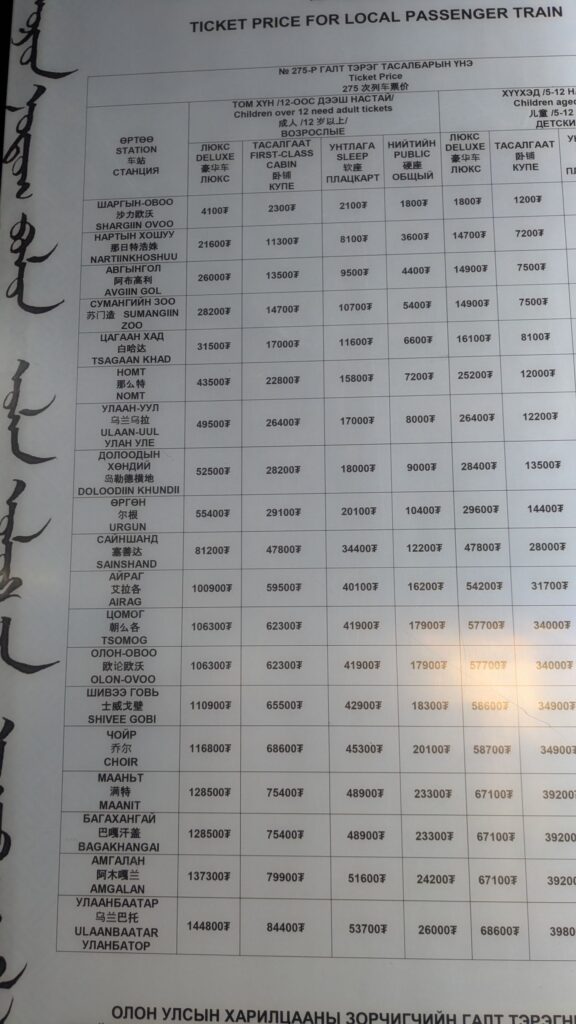 TICKET PRICE FOR LOCAL PASSENGER TRAIN
№ 275-Р ГАЛТ ТЭРЭГ ТАСАЛБАРЫН ҮНЭ
Ticket Price
275 次列车票价
ӨРТӨӨ
STATION
车站
СТАНЦИЯ
ТОМ ХҮН /12-ООС ДЭЭШ НАСТАЙ/
Children over 12 need adult tickets
成人 /12 岁以上/
ВОЗРОСЛЫЕ
ХҮҮХЭД /5-12
Children aged
儿童 /5-12
ДЕТСКИ
ЛЮКС
DELUXE
豪华车
ЛЮКС
ТАСАЛГААТ
FIRST-CLASS
CABIN
卧铺
КУПЕ
УНТЛАГА
SLEEP
软座
ПЛАЦКАРТ
НИЙТИЙН
PUBLIC
硬座
ОБЩЫЙ
ЛЮКС
DELUXE
豪华车
ЛЮКС
ТАСАЛГААТ
卧铺
КУПЕ
ШАРГЫН-ОВОО
沙力欧沃
SHARGIIN OVOO
4100₮ 2300₮ 2100₮ 1800₮ 1800₮ 1200₮
НАРТЫН ХОШУУ
那日特浩姝
NARTIINKHOSHUU
21600₮ 11300₮ 8100₮ 3600₮ 14700₮ 7200₮
АВГЫНГОЛ
阿布高利
AVGIIN GOL
26000₮ 13500₮ 9500₮ 4400₮ 14900₮ 7500₮
СУМАНГИЙН ЗОО
苏门造 SUMANGIIN
ZOO
28200₮ 14700₮ 10700₮ 5400₮ 14900₮ 7500₮
ЦАГААН ХАД
白哈达
TSAGAAN KHAD
31500₮ 17000₮ 11600₮ 6600₮ 16100₮ 8100₮
НОМТ
那么特
NOMT
43500₮ 22800₮ 15800₮ 7200₮ 25200₮ 12000₮
УЛААН-УУЛ
乌兰乌拉
ULAAN-UUL
УЛАН УЛЕ
49500₮ 26400₮ 17000₮ 8000₮ 26400₮ 12200₮
ДОЛООДЫН
ХӨНДИЙ
岛勒德横地
DOLOODIIN KHUNDII
52500₮ 28200₮ 18000₮ 9000₮ 28400₮ 13500₮
ӨРГӨН
尔根
URGUN
55400₮ 29100₮ 20100₮ 10400₮ 29600₮ 14400₮
САЙНШАНД
塞善达
SAINSHAND
81200₮ 47800₮ 34400₮ 12200₮ 47800₮ 28000₮
АЙРАГ
艾拉各
AIRAG
100900₮ 59500₮ 40100₮ 16200₮ 54200₮ 31700₮
ЦОМОГ
朝么各
TSOMOG
106300₮ 62300₮ 41900₮ 17900₮ 57700₮ 34000₮
ОЛОН-ОВОО
欧论欧沃
OLON-OVOO
106300₮ 62300₮ 41900₮ 17900₮ 57700₮ 34000₮
ШИВЭЭ ГОВЬ
士威戈壁
SHIVEE GOBI
110900₮ 65500₮ 42900₮ 18300₮ 58600₮ 34900₮
ЧОЙР
乔尔
CHOIR
116800₮ 68600₮ 45300₮ 20100₮ 58700₮ 34900₮
МААНЬТ
满特
MAANIT
128500₮ 75400₮ 48900₮ 23300₮ 67100₮ 39200
БАГАХАНГАЙ
巴嘎汗盖
BAGAKHANGAI
128500₮ 75400₮ 48900₮ 23300₮ 67100₮ 39200
АМГАЛАН
阿木嘎兰
AMGALAN
137300₮ 79900₮ 51600₮ 24200₮ 67100₮ 39200
УЛААНБААТАР
乌兰巴托
ULAANBAATAR
УЛАНБАТОР
144800₮ 84400₮ 53700₮ 26000₮ 68600₮ 3980
ОЛОН УЛСЫН ХАРИЛЦААНЫ ЗОРЧИГЧИЙН ГАЛТ ТЭРЭГН